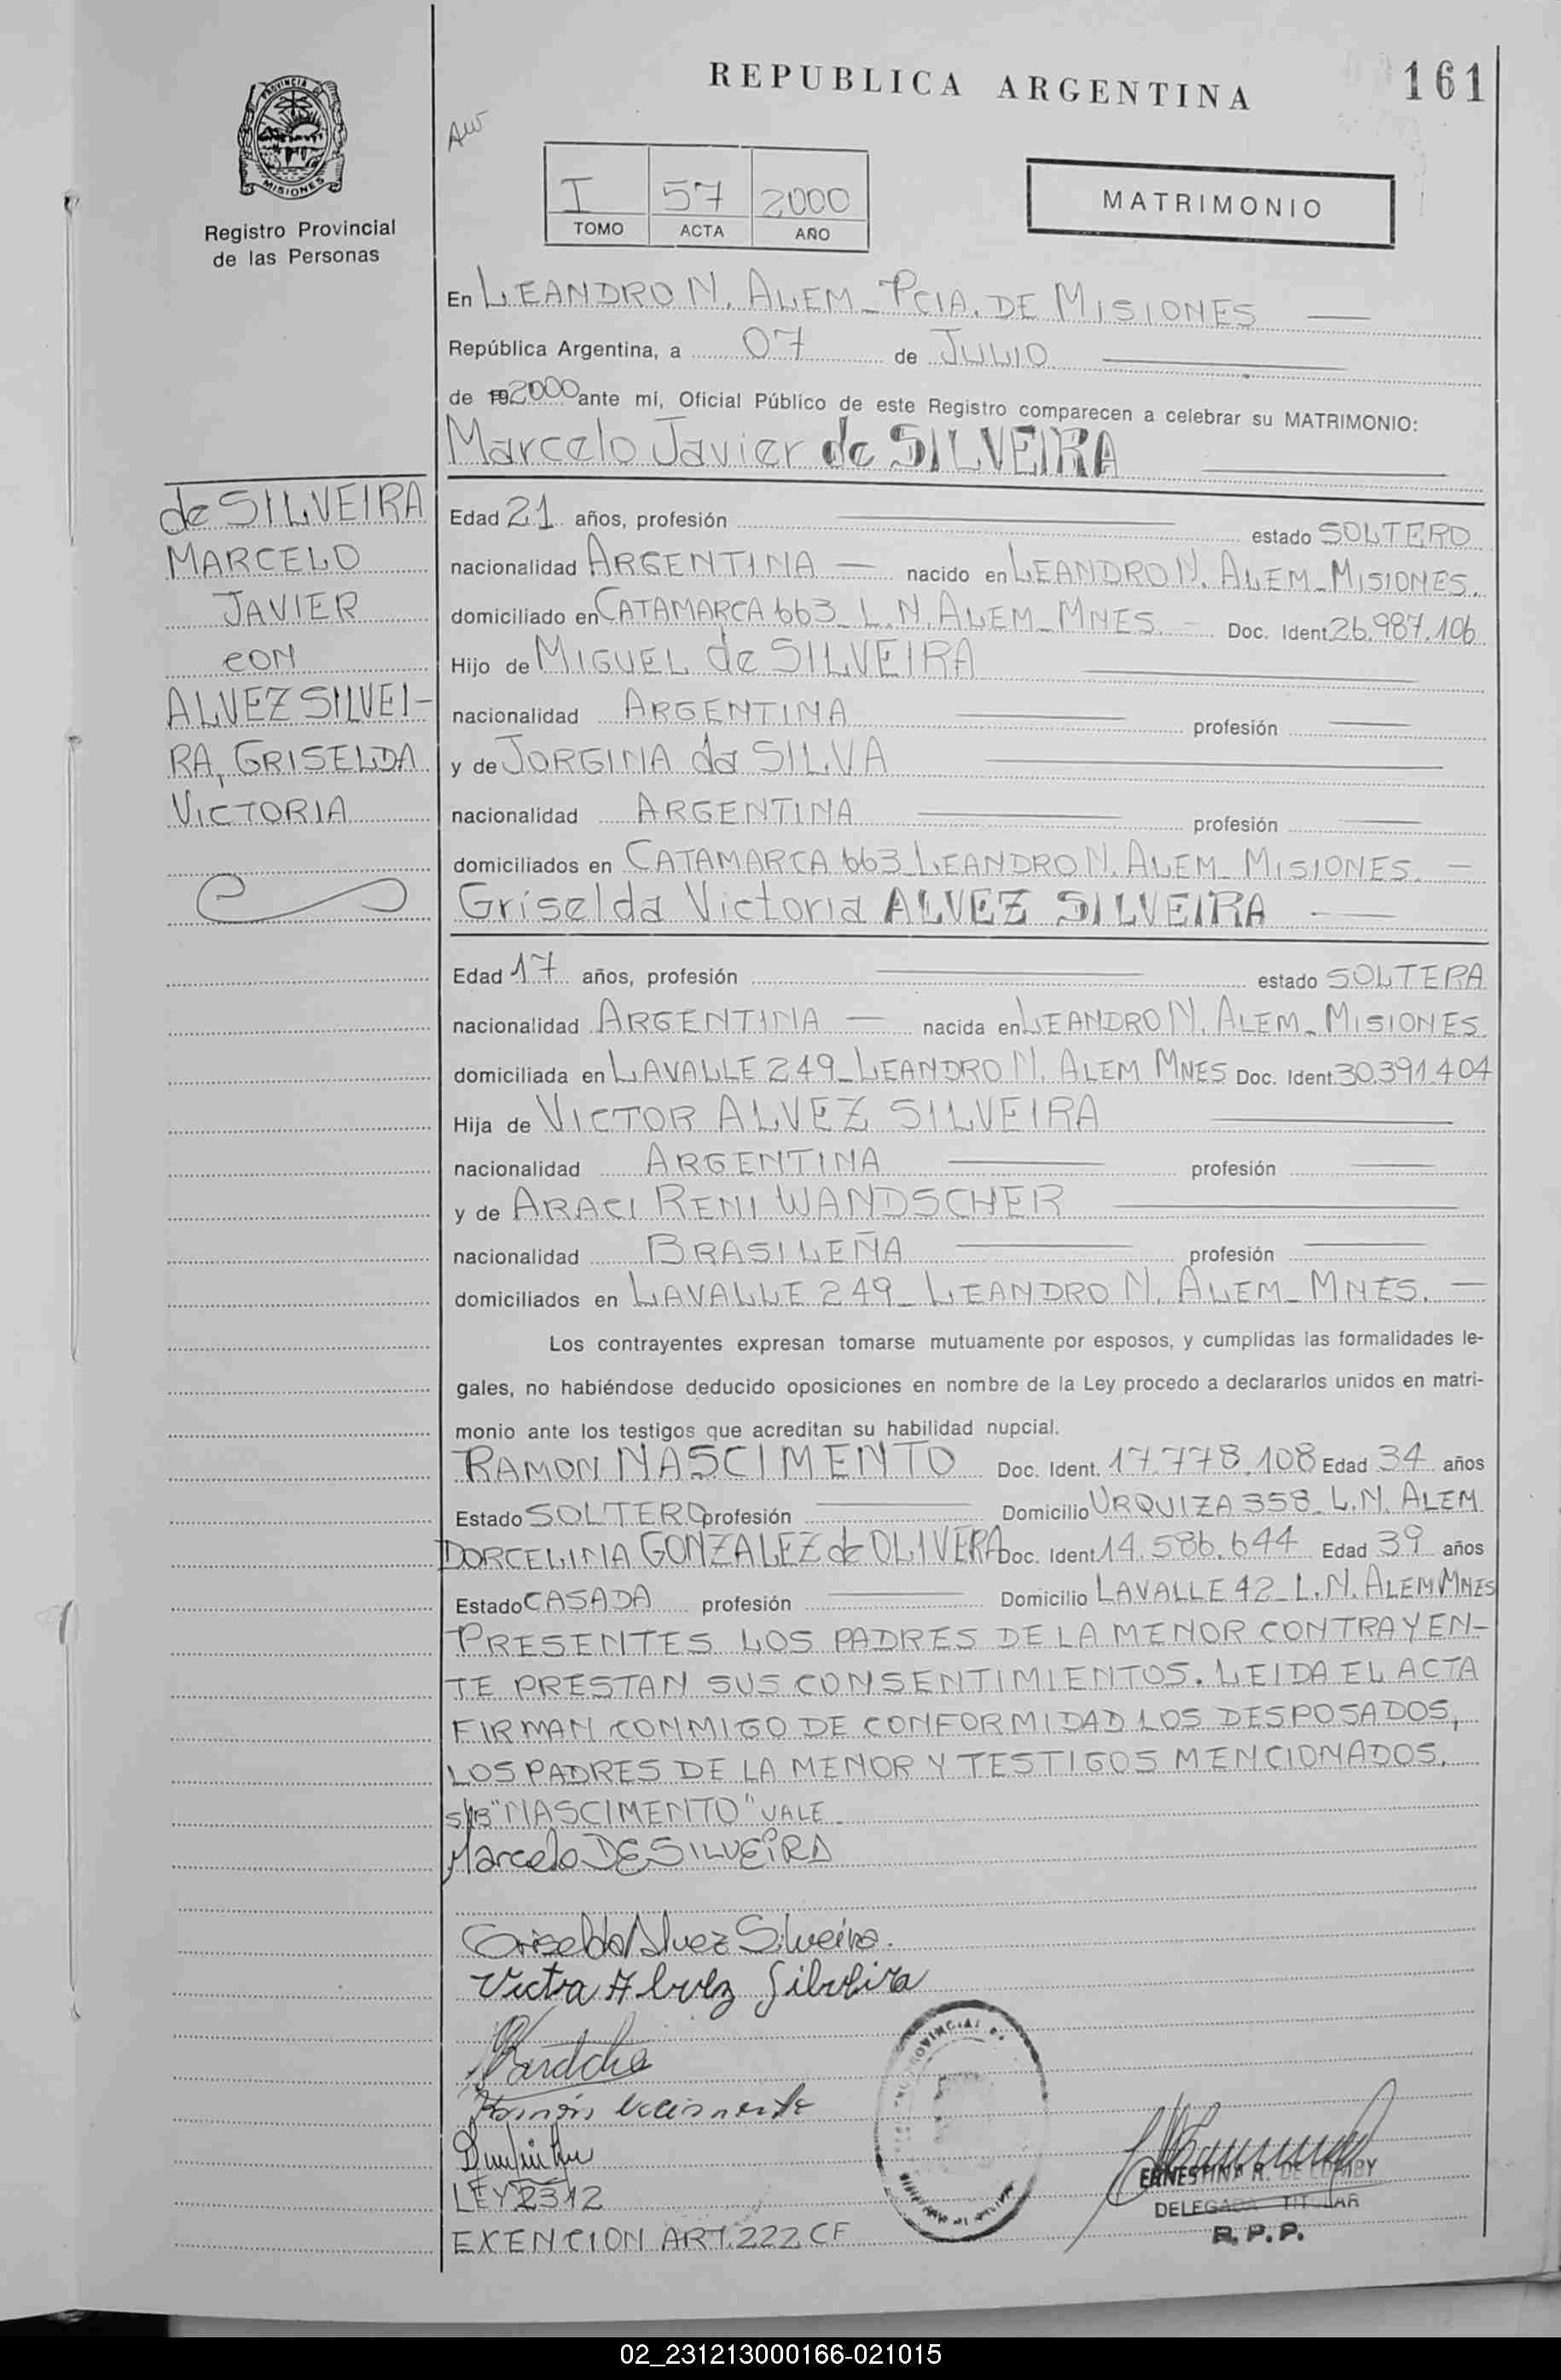 REPUBLICA ARGENTINA
161
PROVINCIA DE
MISIONES
Registro Provincial
de las Personas
AW
I 57 2000
TOMO ACTA AÑO
MATRIMONIO
En LEANDRO N. ALEM_PCIA. DE MISIONES
República Argentina, a 07 de JULIO
de 19 2000 ante mí, Oficial Público de este Registro comparecen a celebrar su MATRIMONIO:
Marcelo Javier de SILVEIRA
de SILVEIRA
MARCELO
JAVIER
CON
ALVEZ SILVEI-
RA, GRISELDA
VICTORIA
Edad 21 años, profesión estado SOLTERO
nacionalidad ARGENTINA nacido en LEANDRO N. ALEM_MISIONES.
domiciliado en CATAMARCA 663_L.N.ALEM_MNES. Doc. Ident. 26.987.106
Hijo de MIGUEL de SILVEIRA
nacionalidad ARGENTINA profesión
y de JORGINA da SILVA
nacionalidad ARGENTINA profesión
domiciliados en CATAMARCA 663_LEANDRO N. ALEM_MISIONES.
Griselda Victoria ALVEZ SILVEIRA
Edad 17 años, profesión estado SOLTERA
nacionalidad ARGENTINA nacida en LEANDRO N. ALEM_MISIONES.
domiciliada en LAVALLE 249_LEANDRO N. ALEM MNES Doc. Ident. 30.391.404
Hija de VICTOR ALVEZ SILVEIRA
nacionalidad ARGENTINA profesión
y de ARACI RENI WANDSCHER
nacionalidad BRASILEÑA profesión
domiciliados en LAVALLE 249_LEANDRO N. ALEM_MNES.
Los contrayentes expresan tomarse mutuamente por esposos, y cumplidas las formalidades le-
gales, no habiéndose deducido oposiciones en nombre de la Ley procedo a declararlos unidos en matri-
monio ante los testigos que acreditan su habilidad nupcial.
RAMON NASCIMENTO Doc. Ident. 17.778.108 Edad 34 años
Estado SOLTERO profesión Domicilio URQUIZA 358_L.N. ALEM
DORCELINA GONZALEZ de OLIVERA Doc. Ident. 14.586.644 Edad 39 años
Estado CASADA profesión Domicilio LAVALLE 42_L.N. ALEM MNES
PRESENTES LOS PADRES DE LA MENOR CONTRAYEN-
TE PRESTAN SUS CONSENTIMIENTOS. LEIDA EL ACTA
FIRMAN CONMIGO DE CONFORMIDAD LOS DESPOSADOS,
LOS PADRES DE LA MENOR Y TESTIGOS MENCIONADOS.
S/B "NASCIMENTO" VALE
Marcelo DE SILVEIRA
Griselda Alvez Silveira.
LEY 2312
EXENCION ART. 222 CF
ERNESTINA R. DE
DELEGADA TITULAR
R.P.P.
02_231213000166-021015